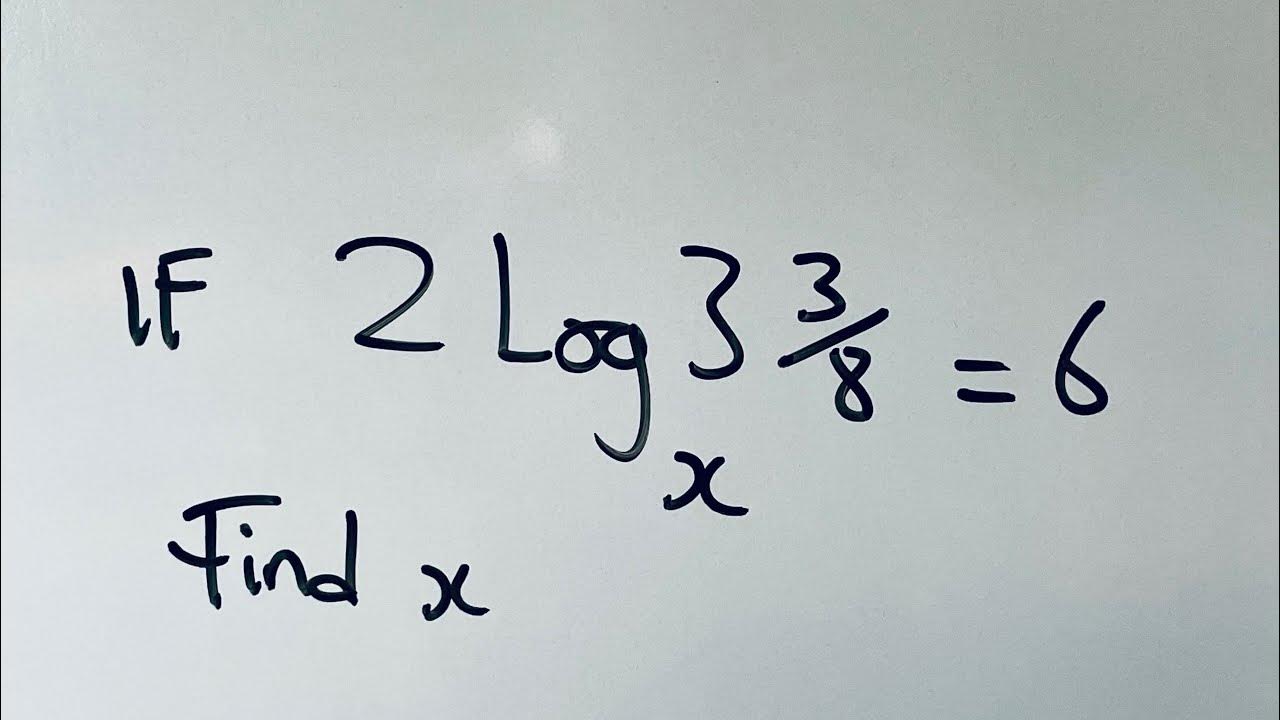 IF 2 Log x 3 3/8 = 6
Find x